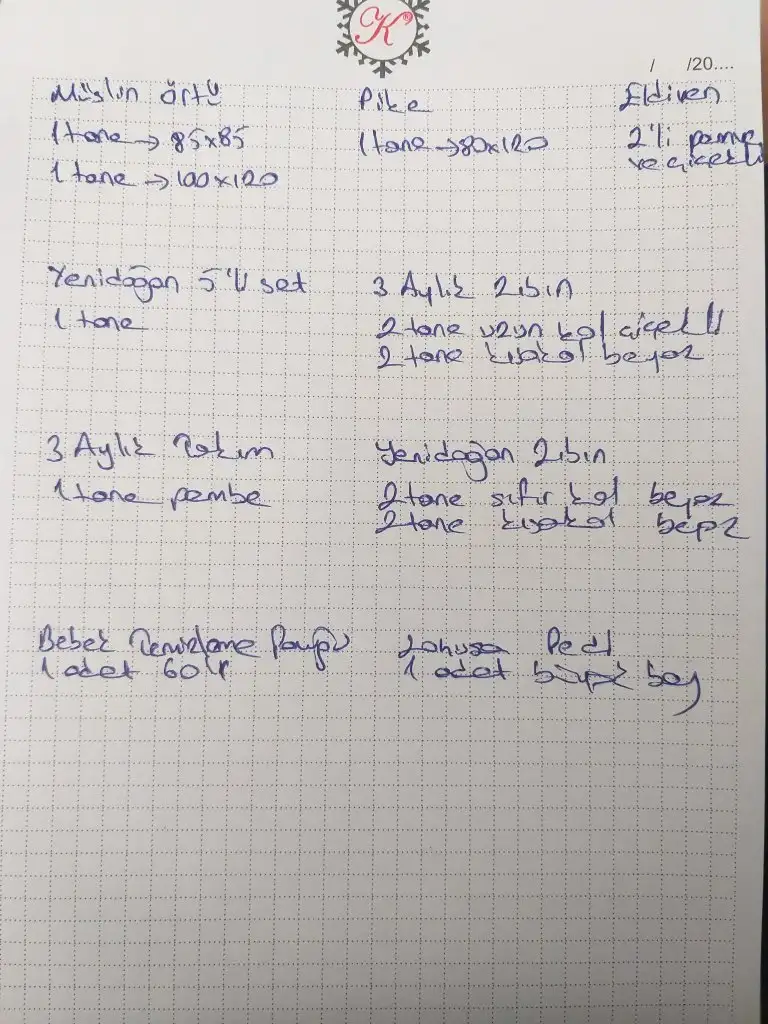 K
/ /20....
Müslin örtü
1 tane → 85x85
1 tane → 100x120
Pike
1 tane → 80x120
Eldiven
2'li pamuk
ve çiçekli
Yenidoğan 5'li set
1 tane
3 Aylık Zıbın
2 tane uzun kol çiçekli
2 tane kısakol beyaz
3 Aylık Takım
1 tane pembe
Yenidoğan Zıbın
2 tane sıfır kol beyaz
2 tane kısakol beyaz
Bebek Temizleme Pamuğu
1 adet 60'lı
Lohusa Pedi
1 adet büyük boy